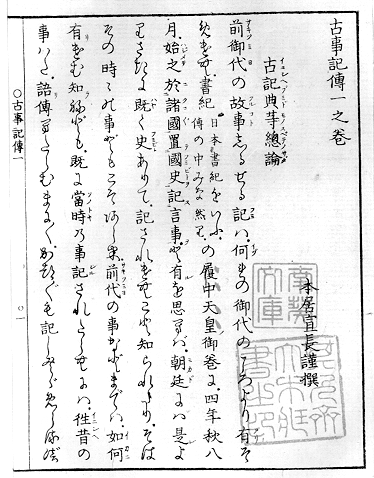 古事記傳一之卷
本居宣長謹撰
古記典等總論
前御代の故事しるせる記は、何れの御代のころより有そ
めけむ、書紀 日本書紀をいふ、傳の中みな然り、の履中天皇御卷に、四年秋八
月、始之於諸國置國史記言事、と有を思へば、朝廷には是よ
りさきに既く史ありて、記されけむこと知られたり、そは
その時々の事どもこそあらめ、前代の事などまでは、如何
有けむ知ねども、既に當時の事記されたらむには、徃昔の
事はた、語傳へたらむまにまに、かつがつも記し
○古事記傳一 ○一